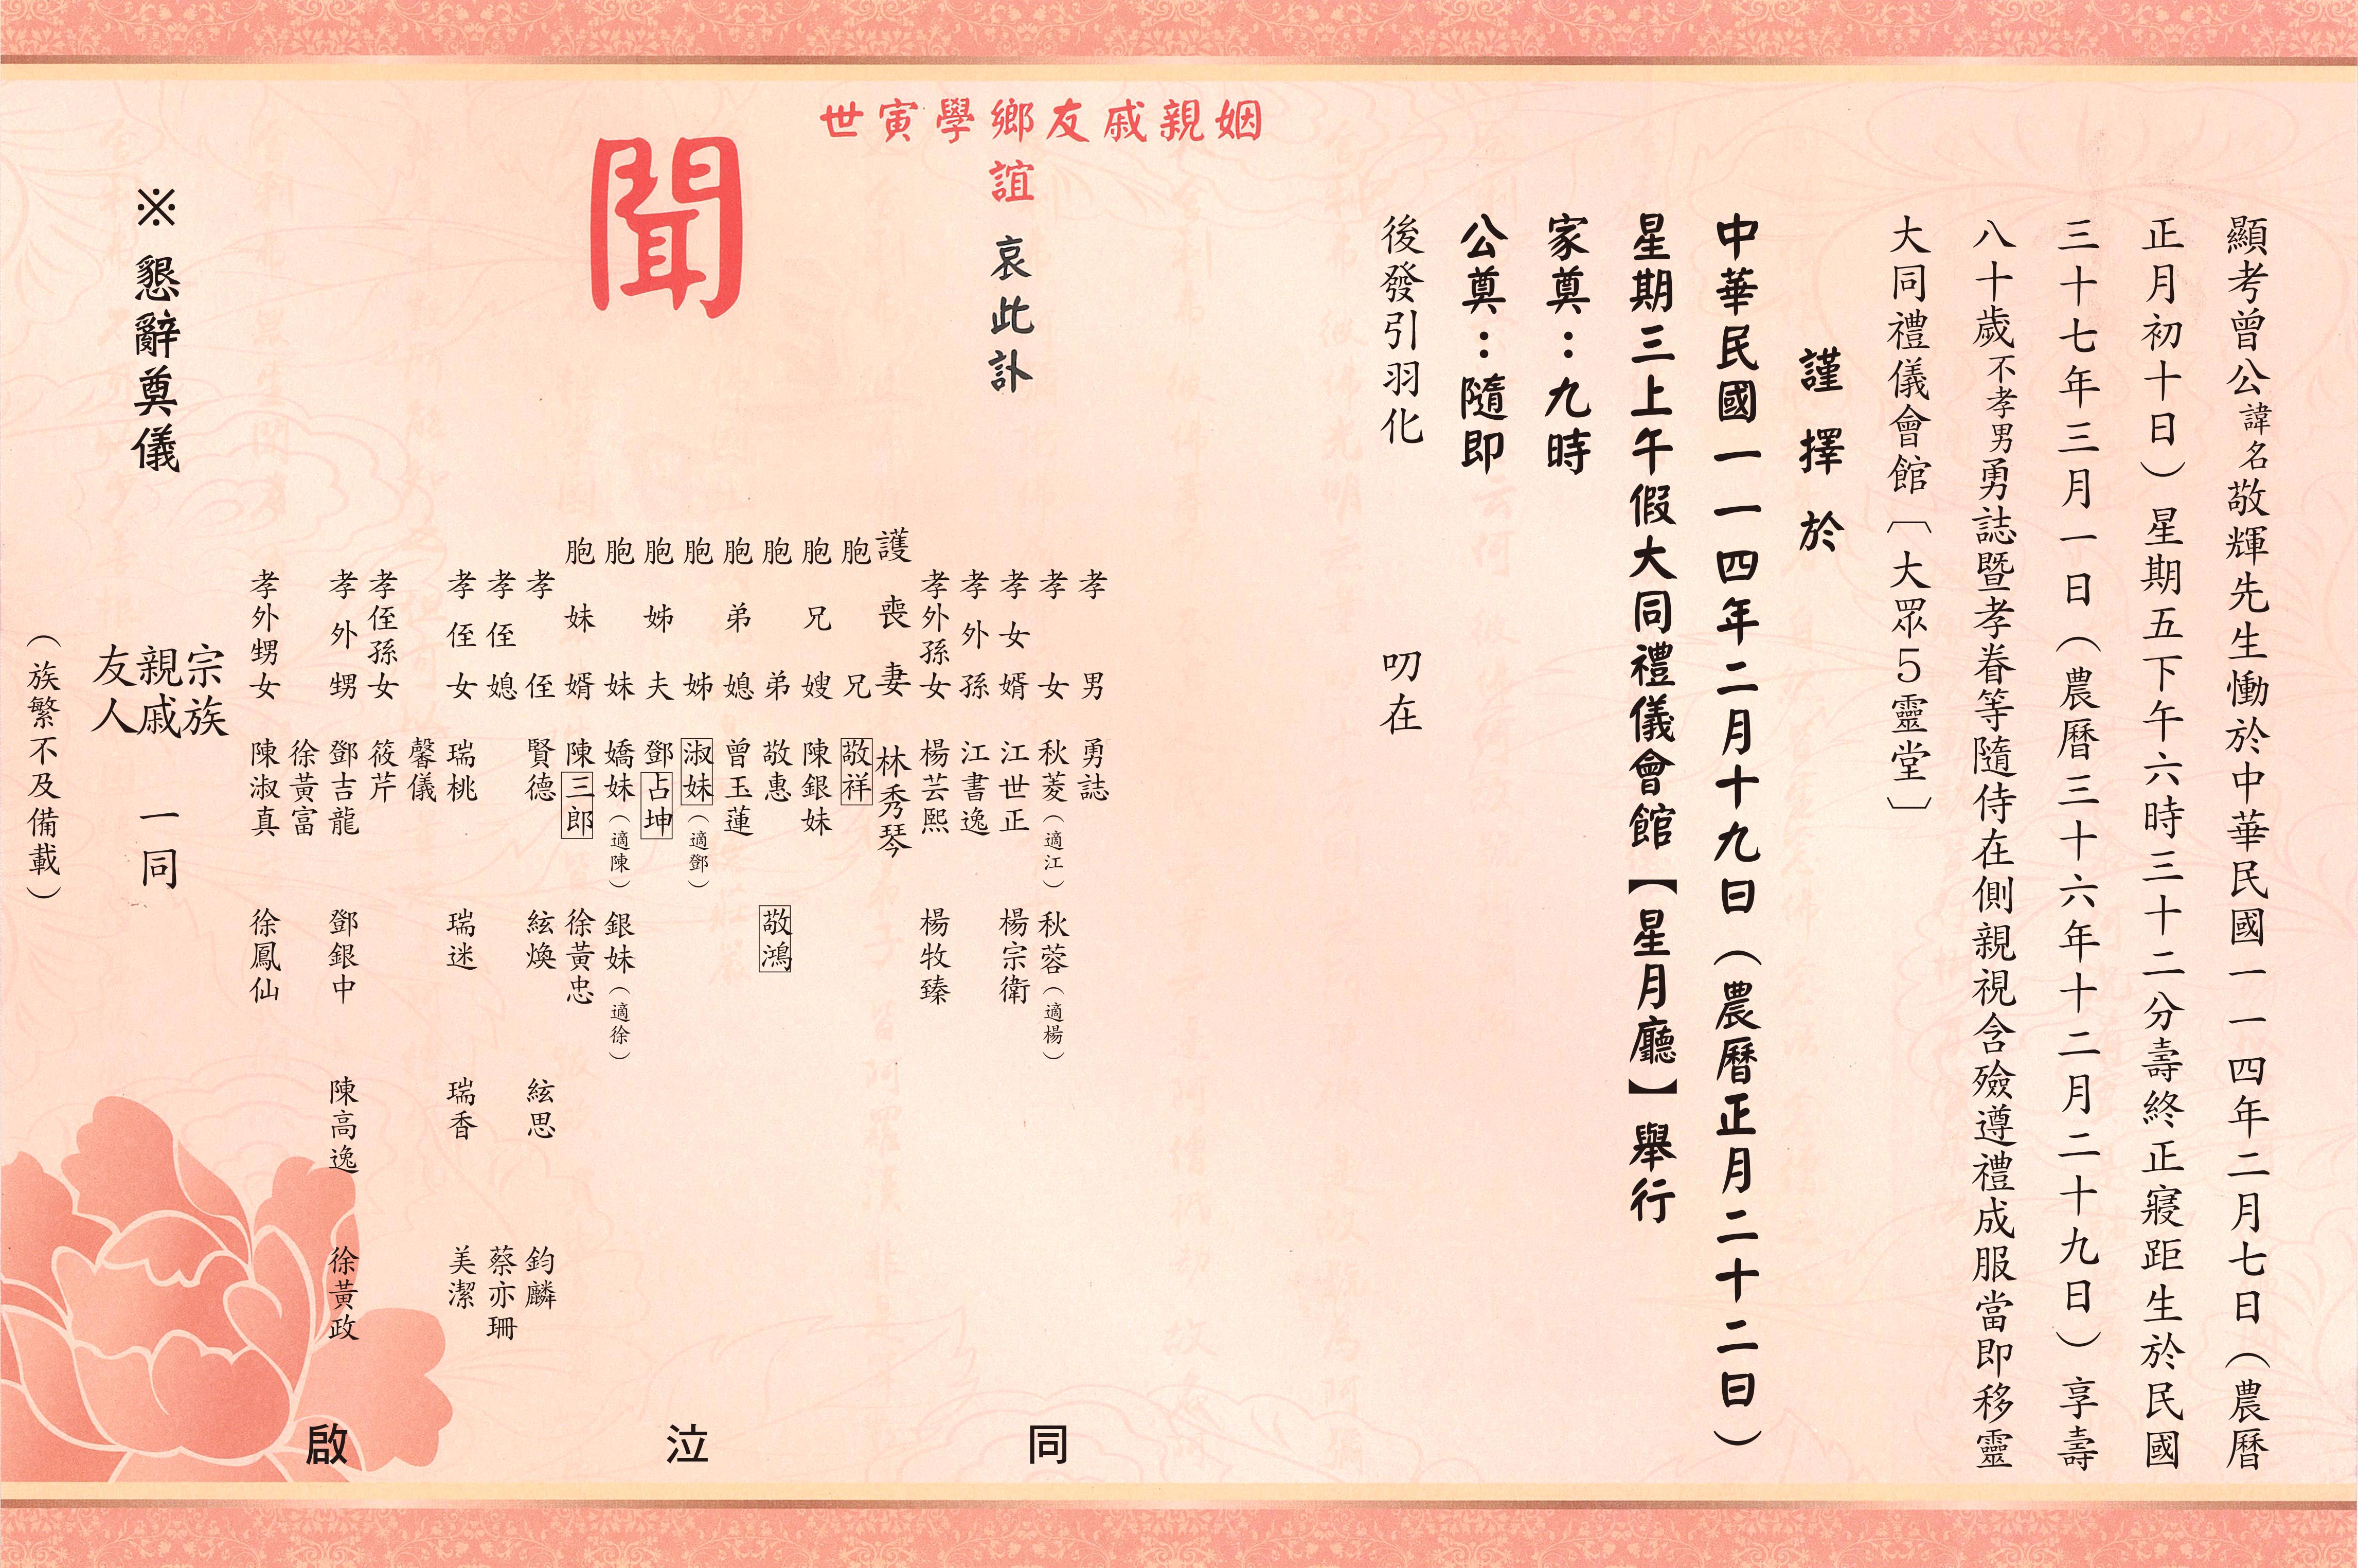 顯考曾公諱名敬輝先生慟於中華民國一一四年二月七日（農曆
正月初十日）星期五下午六時三十二分壽終正寢距生於民國
三十七年三月一日（農曆三十六年十二月二十九日）享壽
八十歲不孝男勇誌暨孝眷等隨侍在側親視含殮遵禮成服當即移靈
大同禮儀會館〔大眾5靈堂〕
謹擇於
中華民國一一四年二月十九日（農曆正月二十二日）
星期三上午假大同禮儀會館【星月廳】舉行
家奠：九時
公奠：隨即
後發引羽化 叨在
姻親戚友鄉學寅世
誼 哀此訃
聞
孝男 勇誌
孝女 秋菱（適江） 秋蓉（適楊）
孝女婿 江世正 楊宗衛
孝外孫 江書逸
孝外孫女 楊芸熙 楊牧臻
護喪妻 林秀琴
胞兄 敬祥
胞兄嫂 陳銀妹
胞弟 敬惠 敬鴻
胞弟媳 曾玉蓮
胞姊 淑妹（適鄧）
胞姊夫 鄧占坤
胞妹 嬌妹（適陳） 銀妹（適徐）
胞妹婿 陳三郎 徐黃忠
孝侄 賢德 絃煥 絃思 鈞麟
孝侄媳 蔡亦珊
孝侄女 瑞桃 瑞迷 瑞香 美潔
馨儀
孝侄孫女 筱芹
孝外甥 鄧吉龍 鄧銀中 陳高逸 徐黃政
徐黃富
孝外甥女 陳淑真 徐鳳仙
同泣啟
宗族
親戚 一同
友人
※懇辭奠儀
（族繁不及備載）